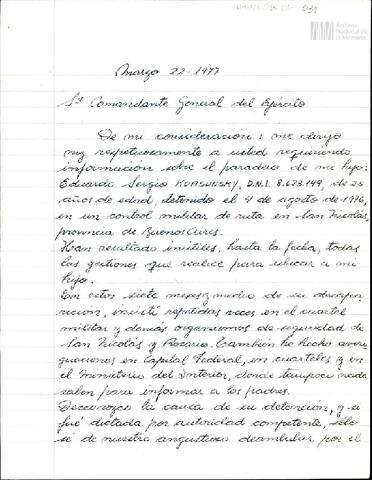 031
Archivo
Nacional de
la Memoria
Marzo 22-1977
Sr Comandante General del Ejército
De mi consideración: me dirijo
muy respetuosamente a usted requiriendo
información sobre el paradero de mi hijo:
Eduardo Sergio KORSUNSKY, D.N.I. 8.673.149, de 25
años de edad, detenido el 4 de agosto de 1976,
en un control militar de ruta en San Nicolás,
provincia de Buenos Aires.
Han resultado inútiles, hasta la fecha, todas
las gestiones que realicé para ubicar a mi
hijo.
En estos siete meses y medio de su desapa-
rición, insistí repetidas veces en el cuartel
militar y demás organismos de seguridad de
San Nicolás y Rosario. También he hecho averi-
guaciones en Capital Federal, en cuarteles y en
el Ministerio del Interior, donde tampoco nada
saben para informar a los padres.
Desconozco la causa de su detención, y si
fué dictada por autoridad competente, sólo
sé de nuestro angustioso deambular por el